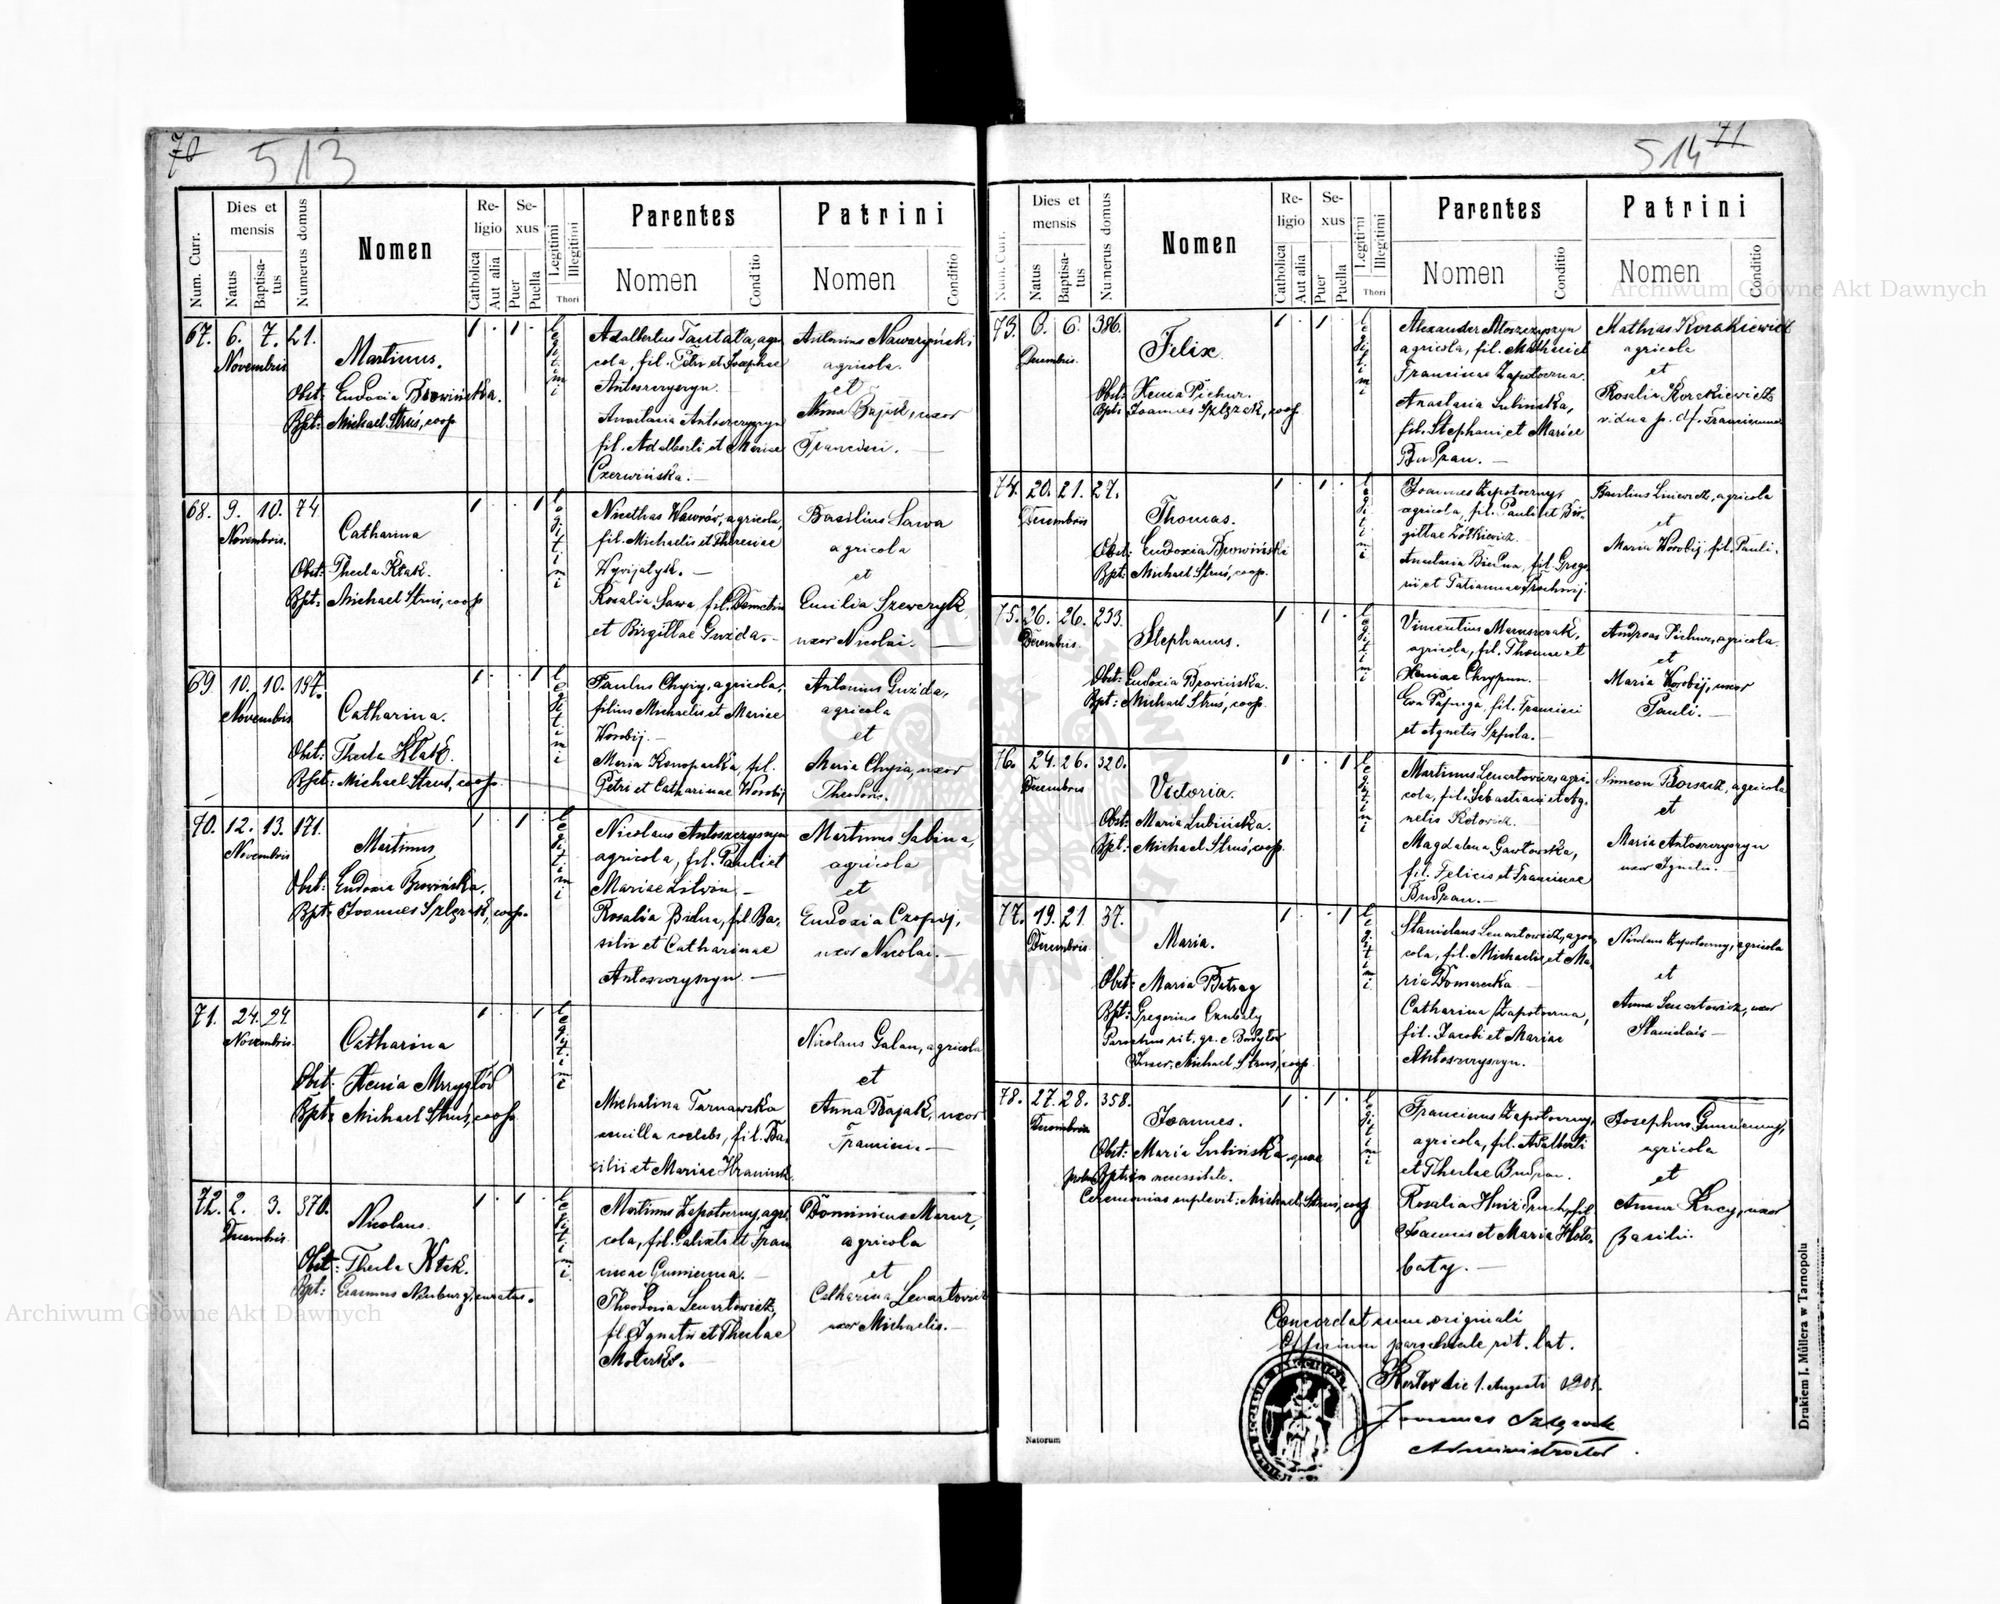 70 513
Num. Curr. Dies et mensis Natus Baptisatus Numerus domus Nomen Religio Catholica Aut alia Sexus Puer Puella Legitimi Illegitimi Thori Parentes Nomen Conditio Patrini Nomen Conditio
67. 6. 7. 21.
Novembris
Martinus.
Obst: Eudoxia Browińska.
Bpt: Michael Struś, coop.
1 . 1 .
legitimi
Adalbertus Tautała, agri
cola, fil. Petri et Josephae
Antoszczyszyn.
Anastasia Antoszczyszyn
fil. Adalberti et Mariae
Czerwińska. —
Antonius Nawaryński
agricola
et
Anna Bajak, uxor
Francisci. —
68. 9. 10. 74
Novembris.
Catharina
Obst: Thecla Kłak.
Bpt: Michael Struś, coop
1 . . 1
legitimi
Nicethas Wawrów, agricola,
fil. Michaelis et Theresiae
Rosalia Sawa, fil. Demetrii
et Birgittae Guzda. —
Basilius Sawa
agricola
et
Emilia Szewczyk
uxor Nicolai. —
69. 10. 10. 157.
Novembris
Catharina.
Obst: Thecla Kłak.
Bpt: Michael Struś, coop
1 . . 1
legitimi
Paulus Chyży, agricola,
filius Michaelis et Mariae
Worobij. —
Maria Konopacka, fil.
Petri et Catharinae Worobij
Antonius Guzda,
agricola
et
Maria Chyża, uxor
Theodori.
70. 12. 13. 171.
Novembris
Martinus
Obst: Eudoxia Browińska.
Bpt: Joannes Szlęzak, coop.
1 . 1 .
legitimi
Nicolaus Antoszczyszyn
agricola, fil. Pauli et
Mariae Litwin —
Rosalia Bidna, fil. Ba-
silii et Catharinae
Antoszczyszyn —
Martinus Sabina,
agricola
et
Eudoxia Czopij,
uxor Nicolai. —
71. 24. 24.
Novembris.
Catharina
Obst: Xenia Mrzygłód
Bpt: Michael Struś, coop
1 . . 1
legitimi
Michalina Tarnawska
ancilla coelebs, fil. Ba-
silii et Mariae
Nicolaus Galan, agricola
et
Anna Bajak, uxor
Francisci —
72. 2. 3. 370.
Decembris
Nicolaus.
Obst: Thecla Kłak.
Bpt: Erasmus Neuburg, curatus.
1 . 1 .
legitimi
Martinus Zapotoczny, agri-
cola, fil. Calixti et Fran
ciscae Gumienna. —
Theodosia Lenartowicz,
fil. Ignatii et Theclae
Dominicus Mazur,
agricola
et
Catharina Lenartowicz
uxor Michaelis. —
514 71
Num. Curr. Dies et mensis Natus Baptisatus Numerus domus Nomen Religio Catholica Aut alia Sexus Puer Puella Legitimi Illegitimi Thori Parentes Nomen Conditio Patrini Nomen Conditio
73. 6. 6. 386.
Decembris.
Felix
Obst: Xenia Pichur.
Bpt: Joannes Szlęzak, coop.
1 . 1 .
legitimi
Alexander
agricola, fil. Mathiae et
Franciscae Zapotoczna.
Anastasia Lubińska,
fil. Stephani et Mariae
Budzan. —
Mathias Korckiewicz
agricola
et
Rosalia Korckiewicz
vidua p. df. Franciscum
74. 20. 21. 27.
Decembris
Thomas.
Obst: Eudoxia Browińska
Bpt: Michael Struś, coop.
1 . 1 .
legitimi
Joannes Zapotoczny,
agricola, fil. Pauli et Bir-
gittae Żółkiewicz —
Anastasia Bidna, fil. Grego-
rii et Tatiannae
Basilius agricola
et
Maria Worobij, fil. Pauli.
75. 26. 26. 233.
Decembris.
Stephanus.
Obst: Eudoxia Browińska.
Bpt: Michael Struś, coop.
1 . 1 .
legitimi
Vincentius Maruszczak,
agricola, fil. Thomae et
Xeniae
Eva fil. Francisci
et Agnetis Szpola. —
Andreas Pichur, agricola
et
Maria Worobij, uxor
Pauli. —
76. 24. 26. 320.
Decembris
Victoria.
Obst: Maria Lubińska.
Bpt: Michael Struś, coop.
1 . . 1
legitimi
Martinus Lenartowicz, agri-
cola, fil. Sebastiani et Ag-
netis Kotowicz. —
Magdalena Gawłowska,
fil. Felicis et Franciscae
Budzan. —
Simeon Borsacz, agricola
et
Maria Antoszczyszyn
uxor Ignatii. —
77. 19. 21 37.
Decembris
Maria.
Obst: Maria Batrag
Bpt: Gregorius
Parochus rit. gr. e Budyłów
Inscr. Michael Struś, coop
1 . . 1
legitimi
Stanislaus Lenartowicz, agri
cola, fil. Michaelis et Ma-
ria
Catharina Zapotoczna,
fil. Jacobi et Mariae
Antoszczyszyn.
Nicolaus Zapotoczny, agricola
et
Anna Lenartowicz, uxor
Stanislai —
78. 27. 28. 358.
Decembris
Joannes.
Obst: Maria Lubińska quae
Bpt. in necessitate.
Ceremonias suplevit: Michael Struś, coop
1 . 1 .
legitimi
Franciscus Zapotoczny,
agricola, fil. Adalberti
et Theclae Budzan.
Rosalia fil.
Joannis et Maria Hoło-
baty. —
Josephus Gumienny,
agricola
et
Anna Kucy, uxor
Basilii.
Concordat cum originali
Officium parochiale rit. lat.
die 1. Augusti 1905.
Joannes Szlęzak
Administrator.
Natorum
Drukiem J. Müllera w Tarnopolu
Archiwum Główne Akt Dawnych
Archiwum Główne Akt Dawnych